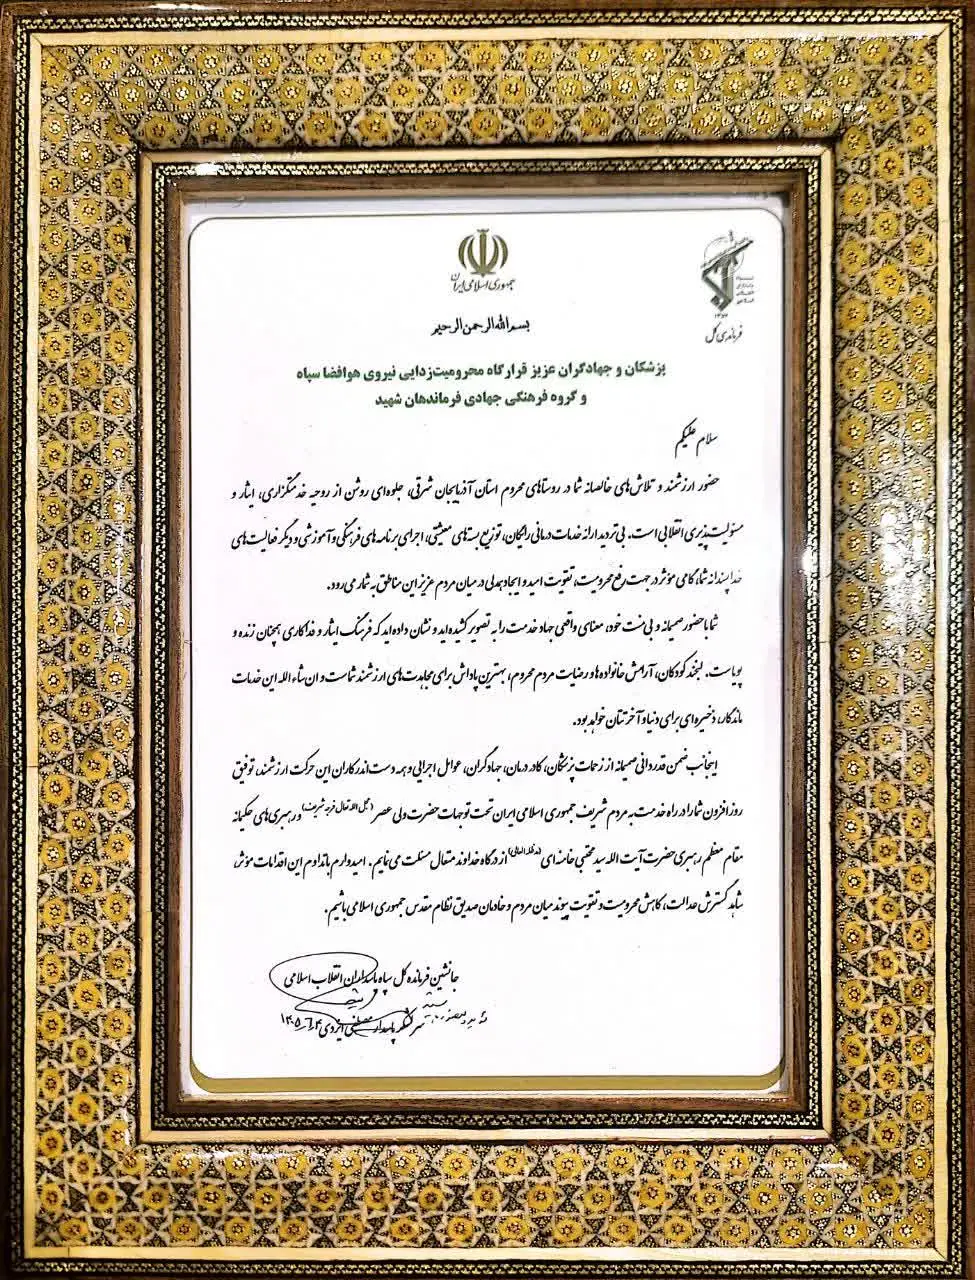 جمهوری اسلامی ایران
۱۳۵۷
فرماندهی کل
بسم الله الرحمن الرحیم
پزشکان و جهادگران عزیز قرارگاه محرومیت‌زدایی نیروی هوافضا سپاه
و گروه فرهنگی جهادی فرماندهان شهید
سلام علیکم
حضور ارزشمند و تلاش‌های خالصانه شما در روستاهای محروم استان آذربایجان شرقی، جلوه‌ای روشن از روحیه خدمتگزاری، ایثار و
مسئولیت‌پذیری انقلابی است. بی‌تردید ارائه خدمات درمانی رایگان، توزیع بسته‌های معیشتی، اجرای برنامه‌های فرهنگی و آموزشی و دیگر فعالیت‌های
خداپسندانه شما، گامی مؤثر در جهت رفع محرومیت، تقویت امید و ایجاد همدلی در میان مردم عزیز این مناطق به شمار می‌رود.
شما با حضور صمیمانه و بی‌منت خود، معنای واقعی جهاد خدمت را به تصویر کشیده‌اید و نشان داده‌اید که فرهنگ ایثار و فداکاری همچنان زنده و
پویاست. لبخند کودکان، آرامش خانواده‌ها و رضایت مردم محروم، بهترین پاداش برای مجاهدت‌های ارزشمند شماست و ان شاءالله این خدمات
ماندگار، ذخیره‌ای برای دنیا و آخرتتان خواهد بود.
اینجانب ضمن قدردانی صمیمانه از زحمات پزشکان، کادر درمان، جهادگران، عوامل اجرایی و همه دست‌اندرکاران این حرکت ارزشمند، توفیق
روز افزون شما را در راه خدمت به مردم شریف جمهوری اسلامی ایران تحت توجهات حضرت ولی عصر (عجل الله تعالی فرجه شریف) و رهبری‌های حکیمانه
مقام معظم رهبری حضرت آیت الله سید مجتبی خامنه‌ای (مدظله‌العالی) از درگاه خداوند متعال مسئلت می‌نمایم. امیدوارم با تداوم این اقدامات مؤثر،
شاهد گسترش عدالت، کاهش محرومیت و تقویت پیوند میان مردم و خادمان صدیق نظام مقدس جمهوری اسلامی باشیم.
جانشین فرمانده کل سپاه پاسداران انقلاب اسلامی
سرلشکر پاسدار ایزدی